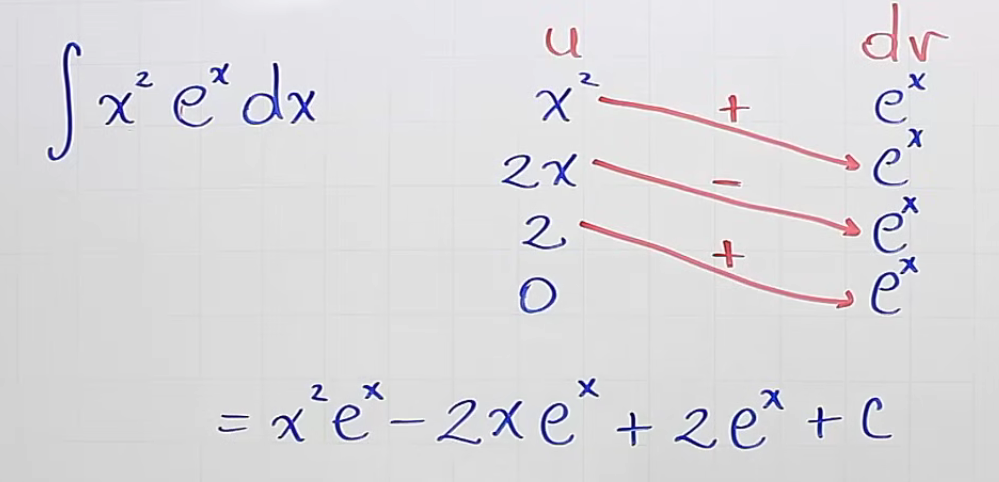 ∫ x² eˣ dx
u dv
x² + eˣ
2x − eˣ
2 + eˣ
0 eˣ
= x² eˣ − 2x eˣ + 2eˣ + c